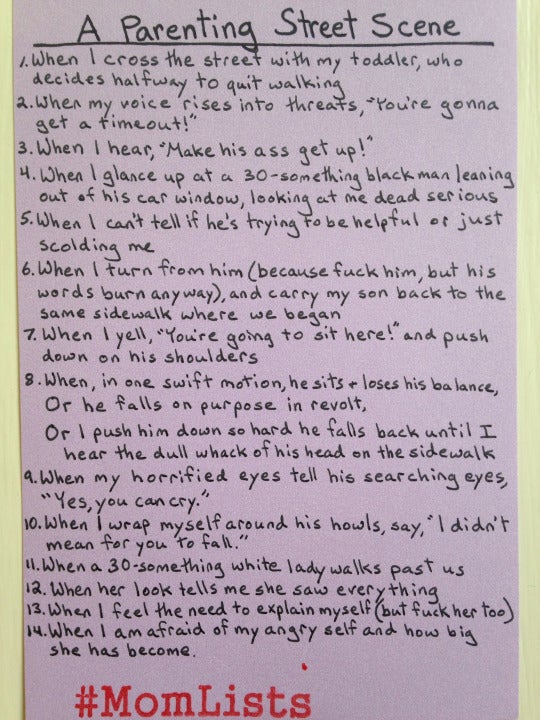 A Parenting Street Scene
1. When I cross the street with my toddler, who
decides halfway to quit walking
2. When my voice rises into threats, "You're gonna
get a timeout!"
3. When I hear, "Make his ass get up!"
4. When I glance up at a 30-something black man leaning
out of his car window, looking at me dead serious
5. When I can't tell if he's trying to be helpful or just
scolding me
6. When I turn from him (because fuck him, but his
words burn anyway), and carry my son back to the
same sidewalk where we began
7. When I yell, "You're going to sit here!" and push
down on his shoulders
8. When, in one swift motion, he sits + loses his balance,
Or he falls on purpose in revolt,
Or I push him down so hard he falls back until I
hear the dull whack of his head on the sidewalk
9. When my horrified eyes tell his searching eyes,
"Yes, you can cry."
10. When I wrap myself around his howls, say, "I didn't
mean for you to fall."
11. When a 30-something white lady walks past us
12. When her look tells me she saw everything
13. When I feel the need to explain myself (but fuck her too)
14. When I am afraid of my angry self and how big
she has become.
#MomLists